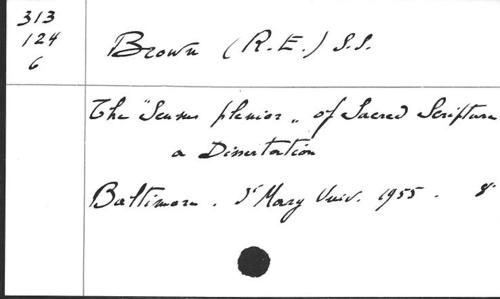 313
124
6
Brown (R.E.) S.S.
The "Sensus plenior" of Sacred Scripture
a Dissertation
Baltimore. St Mary Univ. 1955. 8°